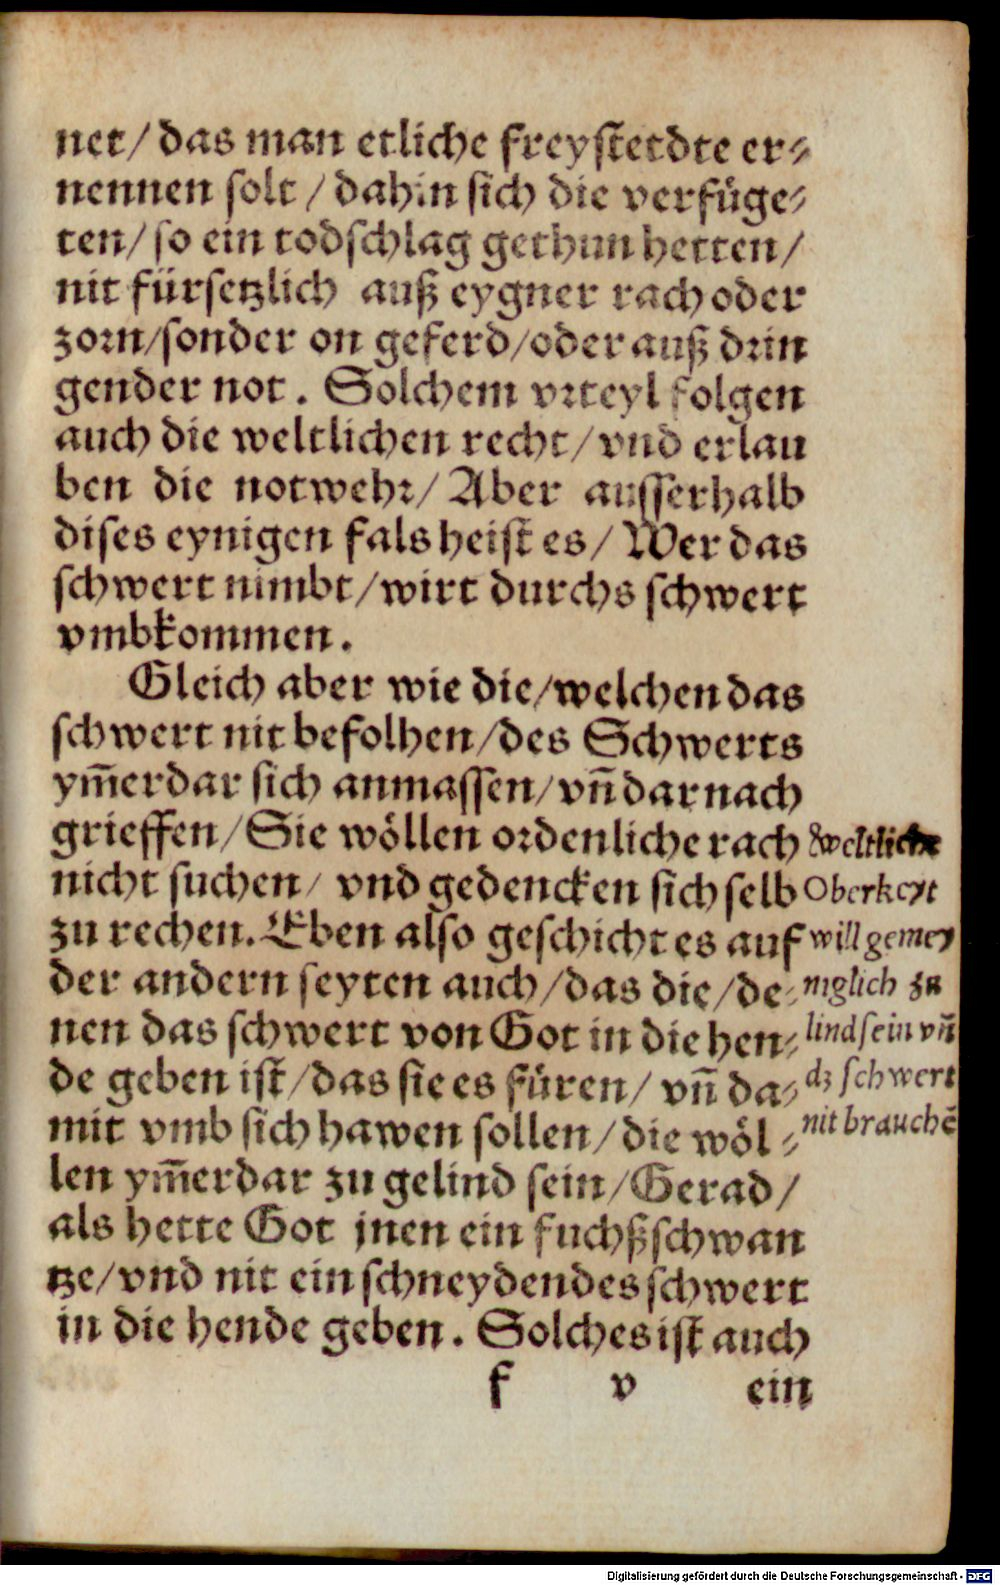 net/ das man etliche freystetdte er-
nennen solt / dahin sich die verfüge-
ten/ so ein todschlag gethun hetten/
nit fürsetzlich auß eygner rach oder
zorn/sonder on geferd/oder auß drin
gender not. Solchem vrteyl folgen
auch die weltlichen recht/ vnd erlau
ben die notwehr/ Aber ausserhalb
dises eynigen fals heist es/ Wer das
schwert nimbt/wirt durchs schwert
vmbkommen.
Gleich aber wie die/welchen das
schwert nit befolhen/des Schwerts
ym̅erdar sich anmassen/ vn̅ darnach
grieffen/ Sie wöllen ordenliche rach
nicht suchen/ vnd gedencken sich selb
zu rechen. Eben also geschicht es auf
der andern seyten auch/das die/de-
nen das schwert von Got in die hen-
de geben ist/das sie es füren/ vn̅ da-
mit vmb sich hawen sollen/die wöl-
len ym̅erdar zu gelind sein/Gerad/
als hette Got jnen ein fuchßschwan
tze/vnd nit ein schneydendes schwert
in die hende geben. Solches ist auch
f v ein
weltliche
Oberkeyt
will gemey
niglich zu
lind sein vn̅
dz schwert
nit brauche̅
Digitalisierung gefördert durch die Deutsche Forschungsgemeinschaft - DFG